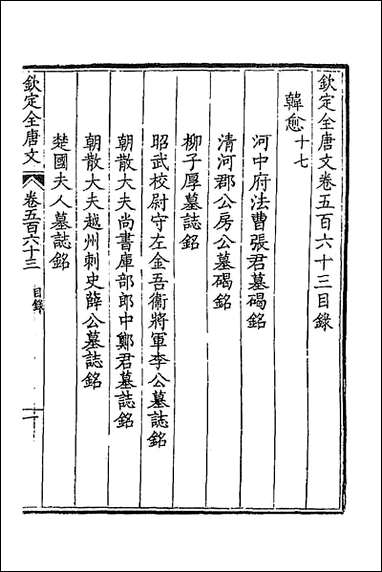 欽定全唐文卷五百六十三目錄
韓愈十七
河中府法曹張君墓碣銘
清河郡公房公墓碣銘
柳子厚墓誌銘
昭武校尉守左金吾衞將軍李公墓誌銘
朝散大夫尚書庫部郎中鄭君墓誌銘
朝散大夫越州刺史薛公墓誌銘
楚國夫人墓誌銘
欽定全唐文 卷五百六十三 目錄 一